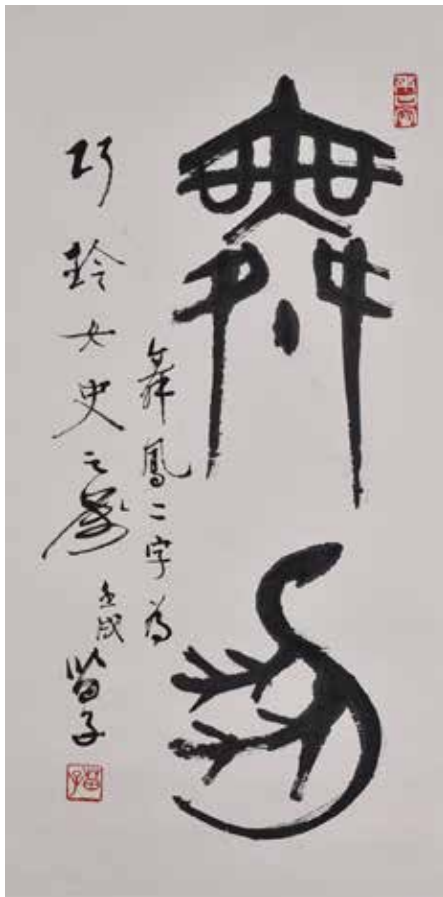 舞鳳
舞鳳二字為
巧鈴女史之屬
壬戌